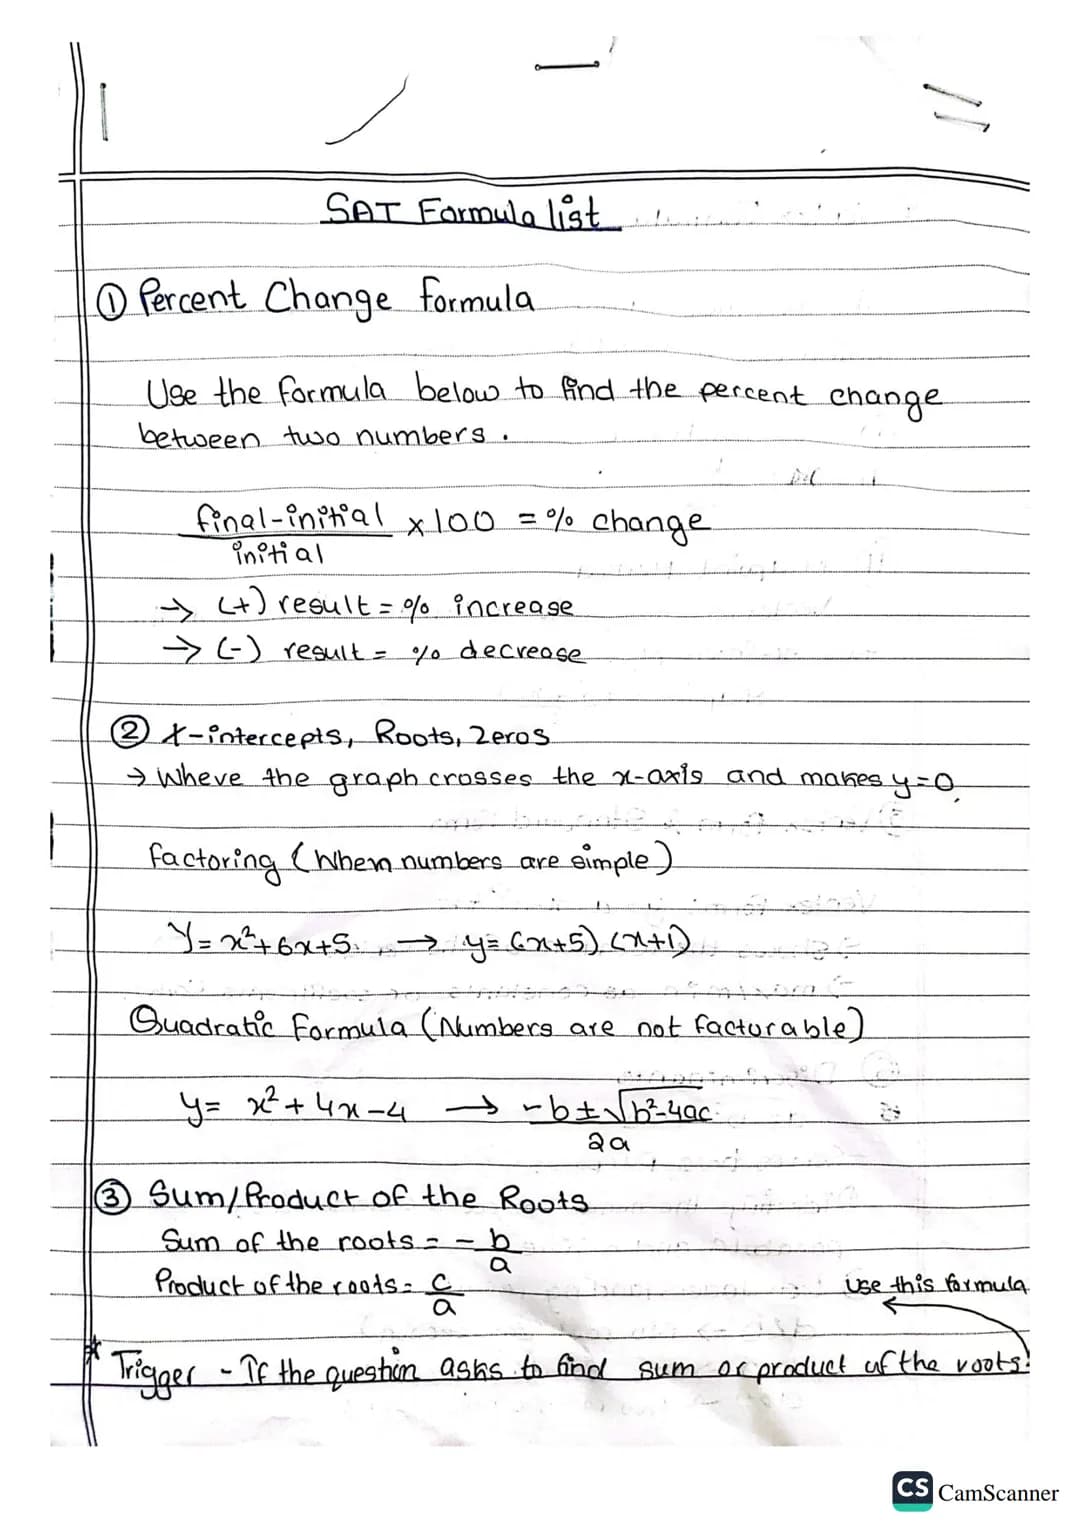 SAT Formula list
① Percent Change formula
Use the formula below to find the percent change
between two numbers.
final-initial x 100 = % change
initial
→ (+) result = % increase
→ (-) result = % decrease
② X-intercepts, Roots, Zeros
→ Where the graph crosses the x-axis and makes y=0.
factoring (When numbers are simple)
Y = x²+6x+5 → y= (x+5) (x+1)
Quadratic Formula (Numbers are not factorable)
y= x² + 4x - 4 → -b±√b²-4ac
2a
③ Sum/Product of the Roots
Sum of the roots = - b
a
Product of the roots = c
a
Use this formula
* Trigger - If the question asks to find sum or product of the roots.
CS CamScanner